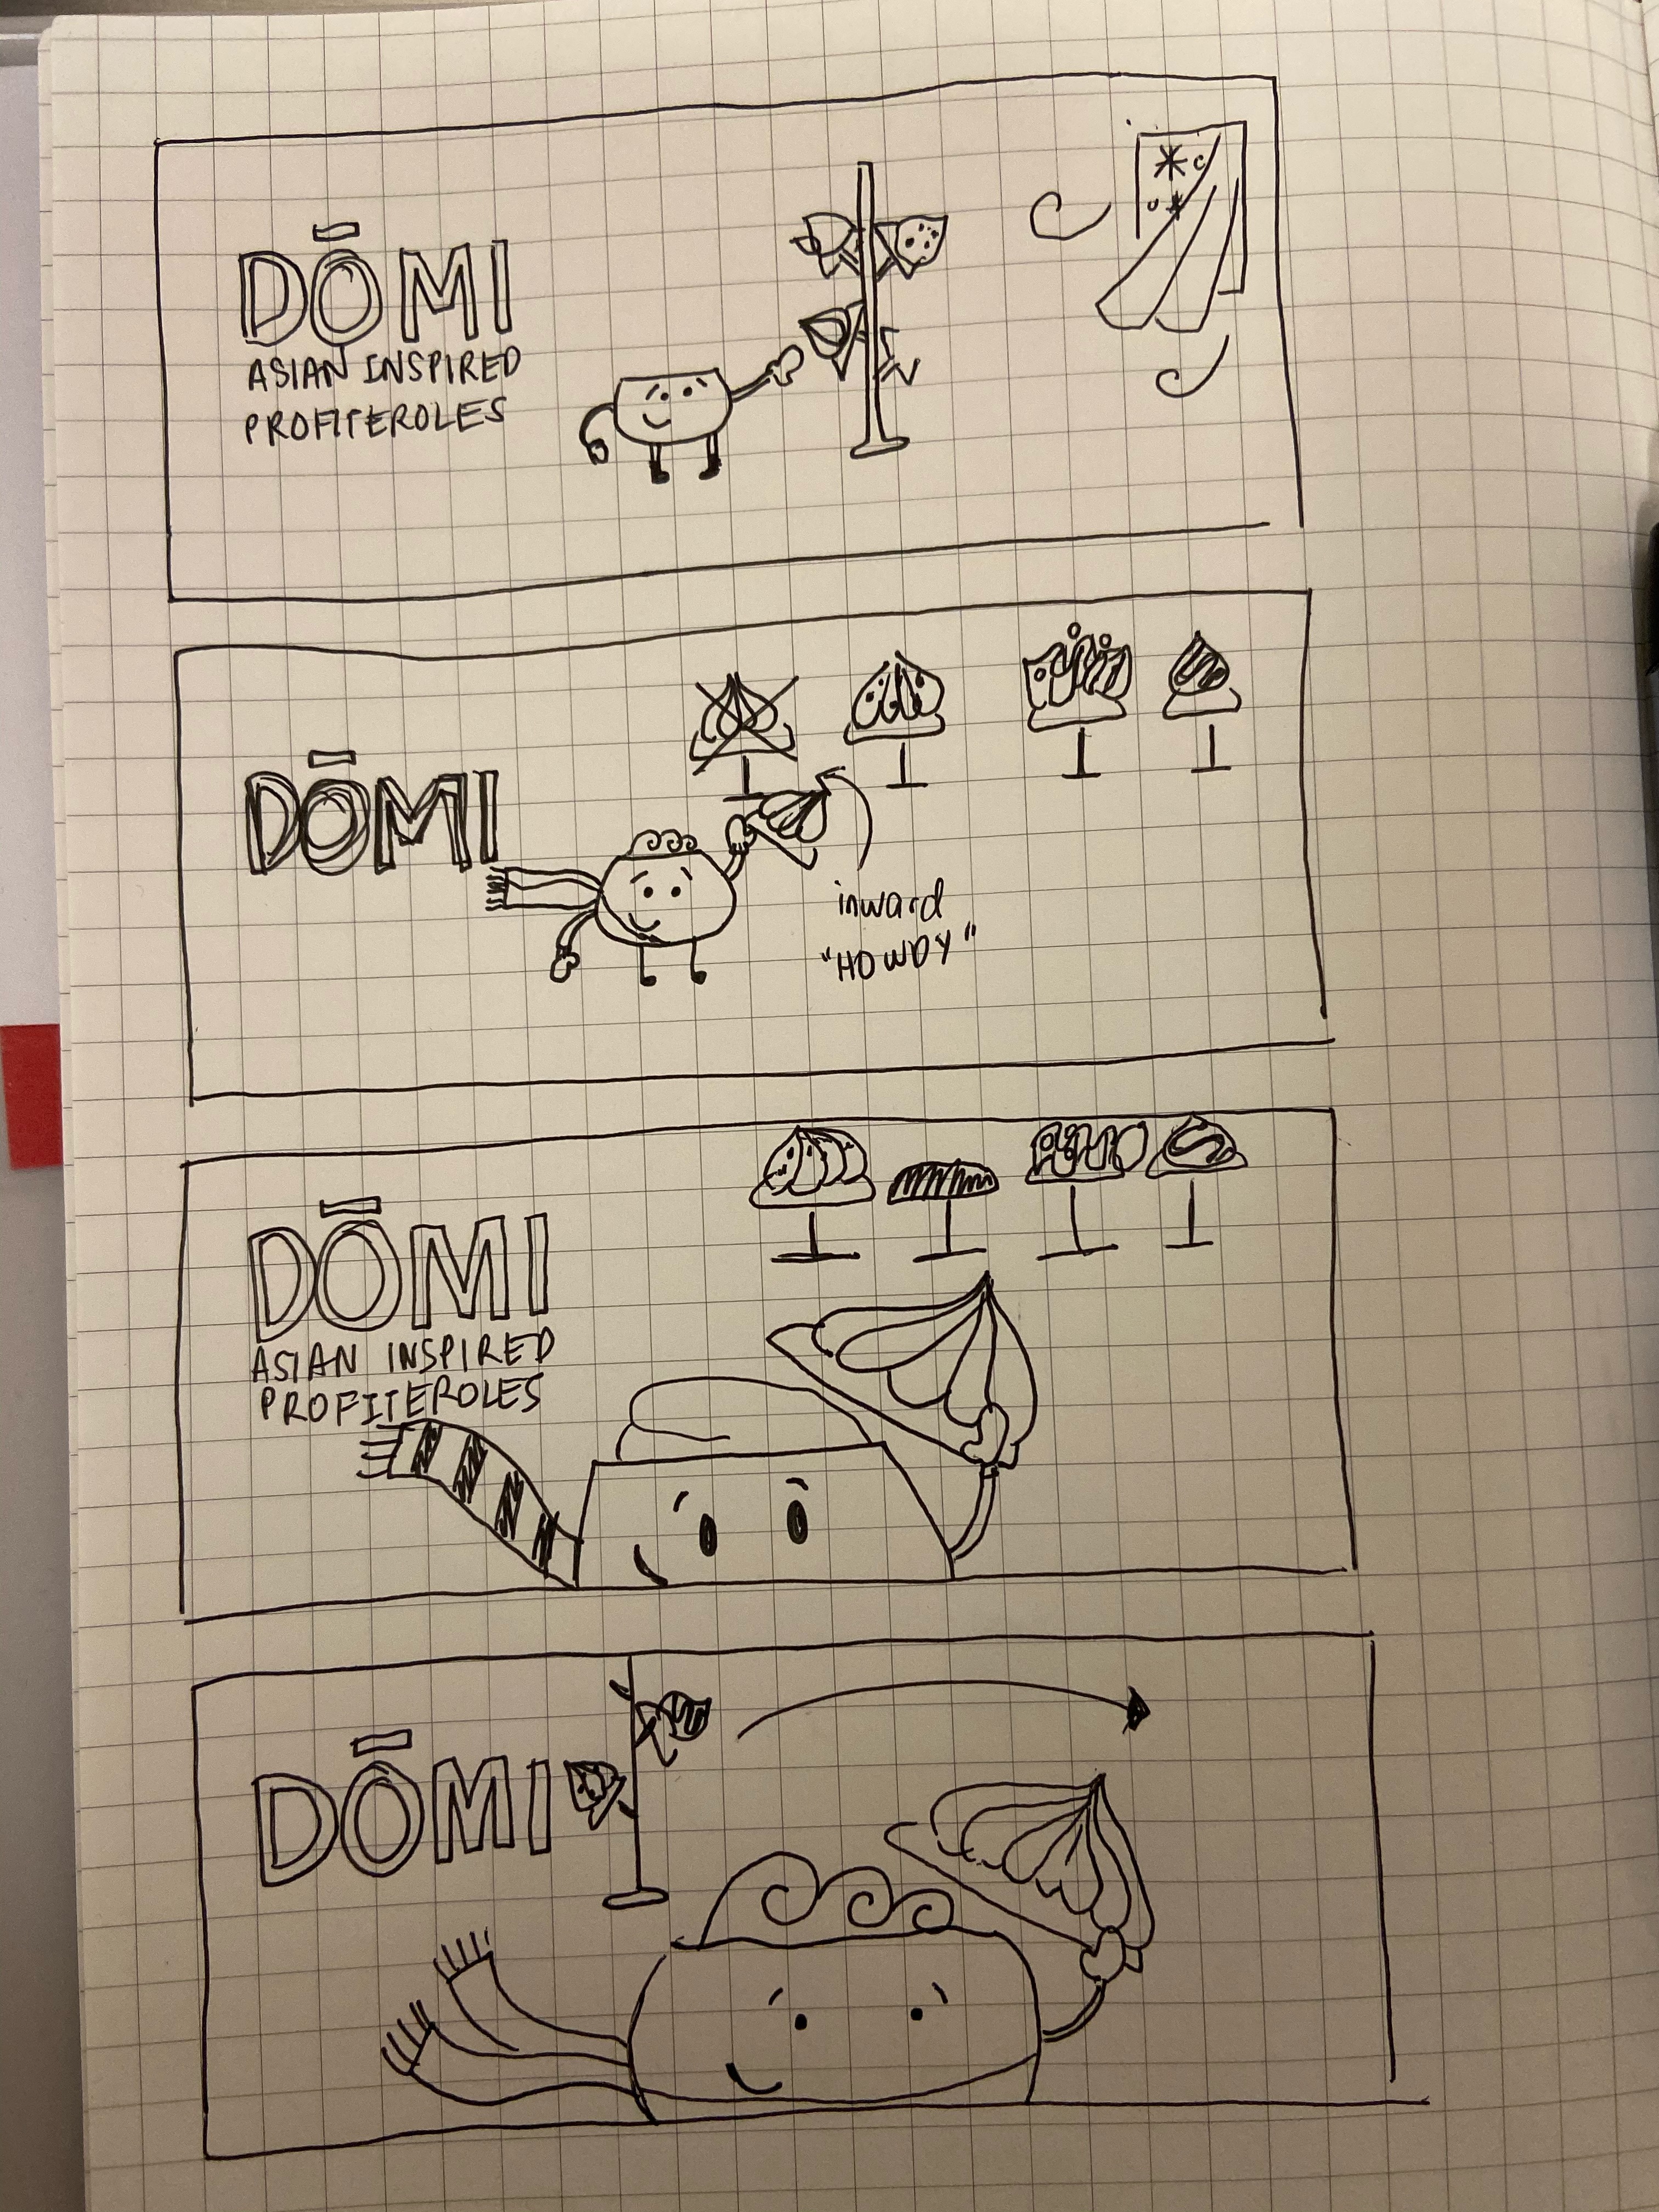 DŌMI
ASIAN INSPIRED
PROFITEROLES
DŌMI
inward
"HOWDY"
DŌMI
ASIAN INSPIRED
PROFITEROLES
DŌMI